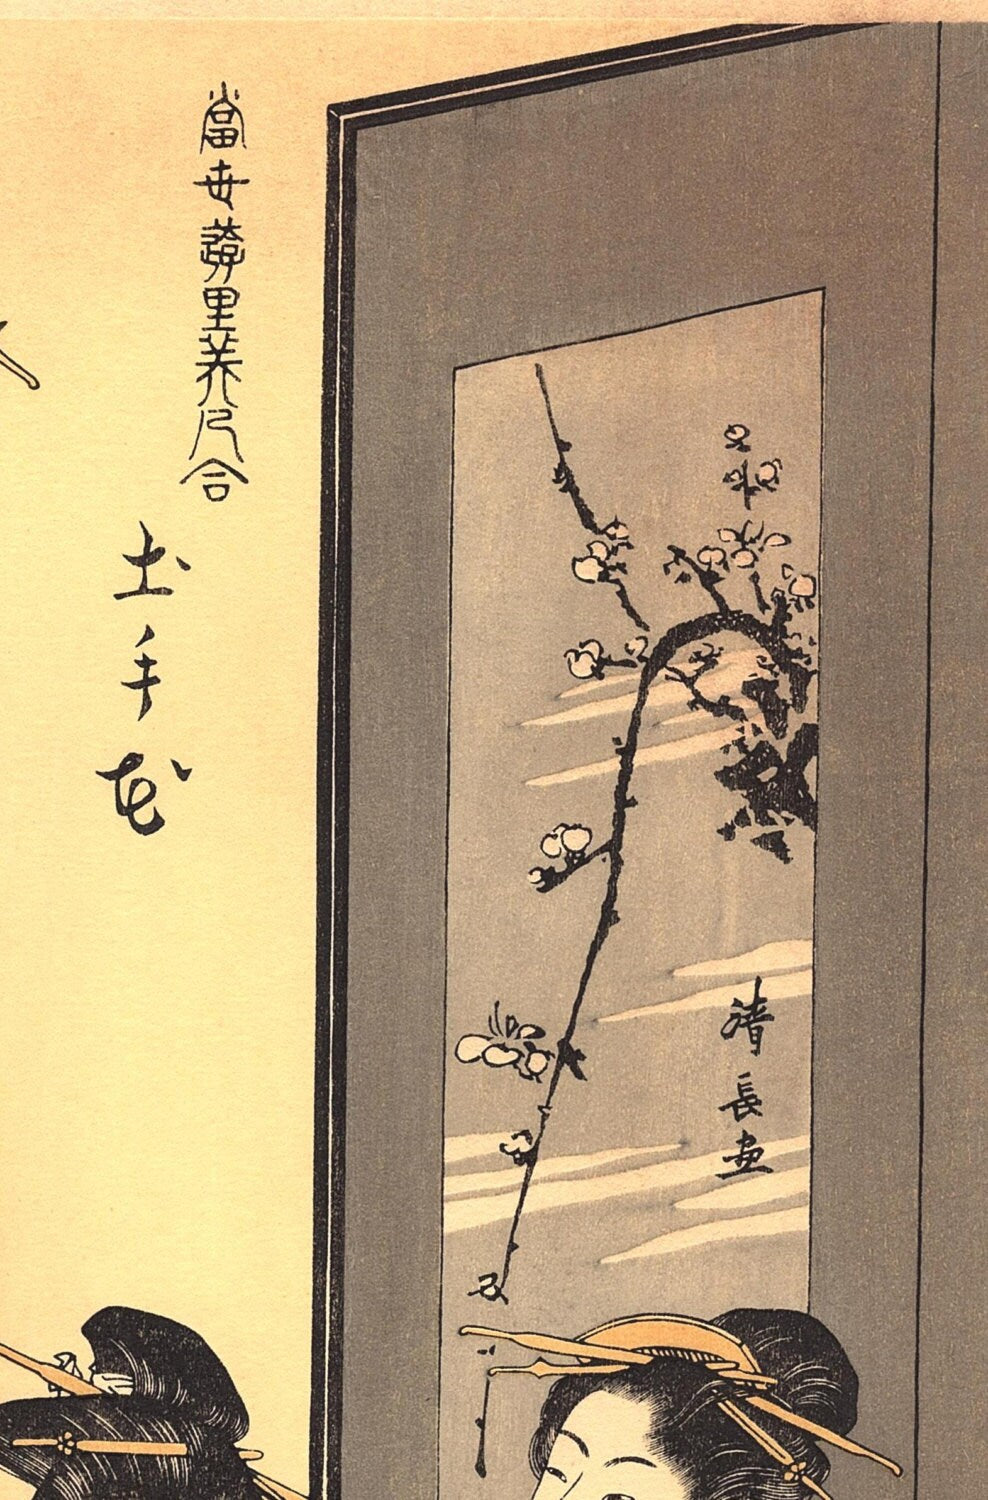 當世遊里美人合
土手花
清長画